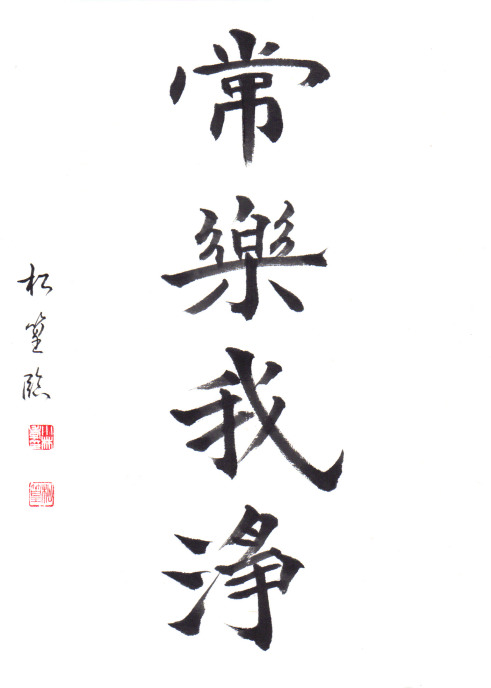 常樂我淨
松篁臨